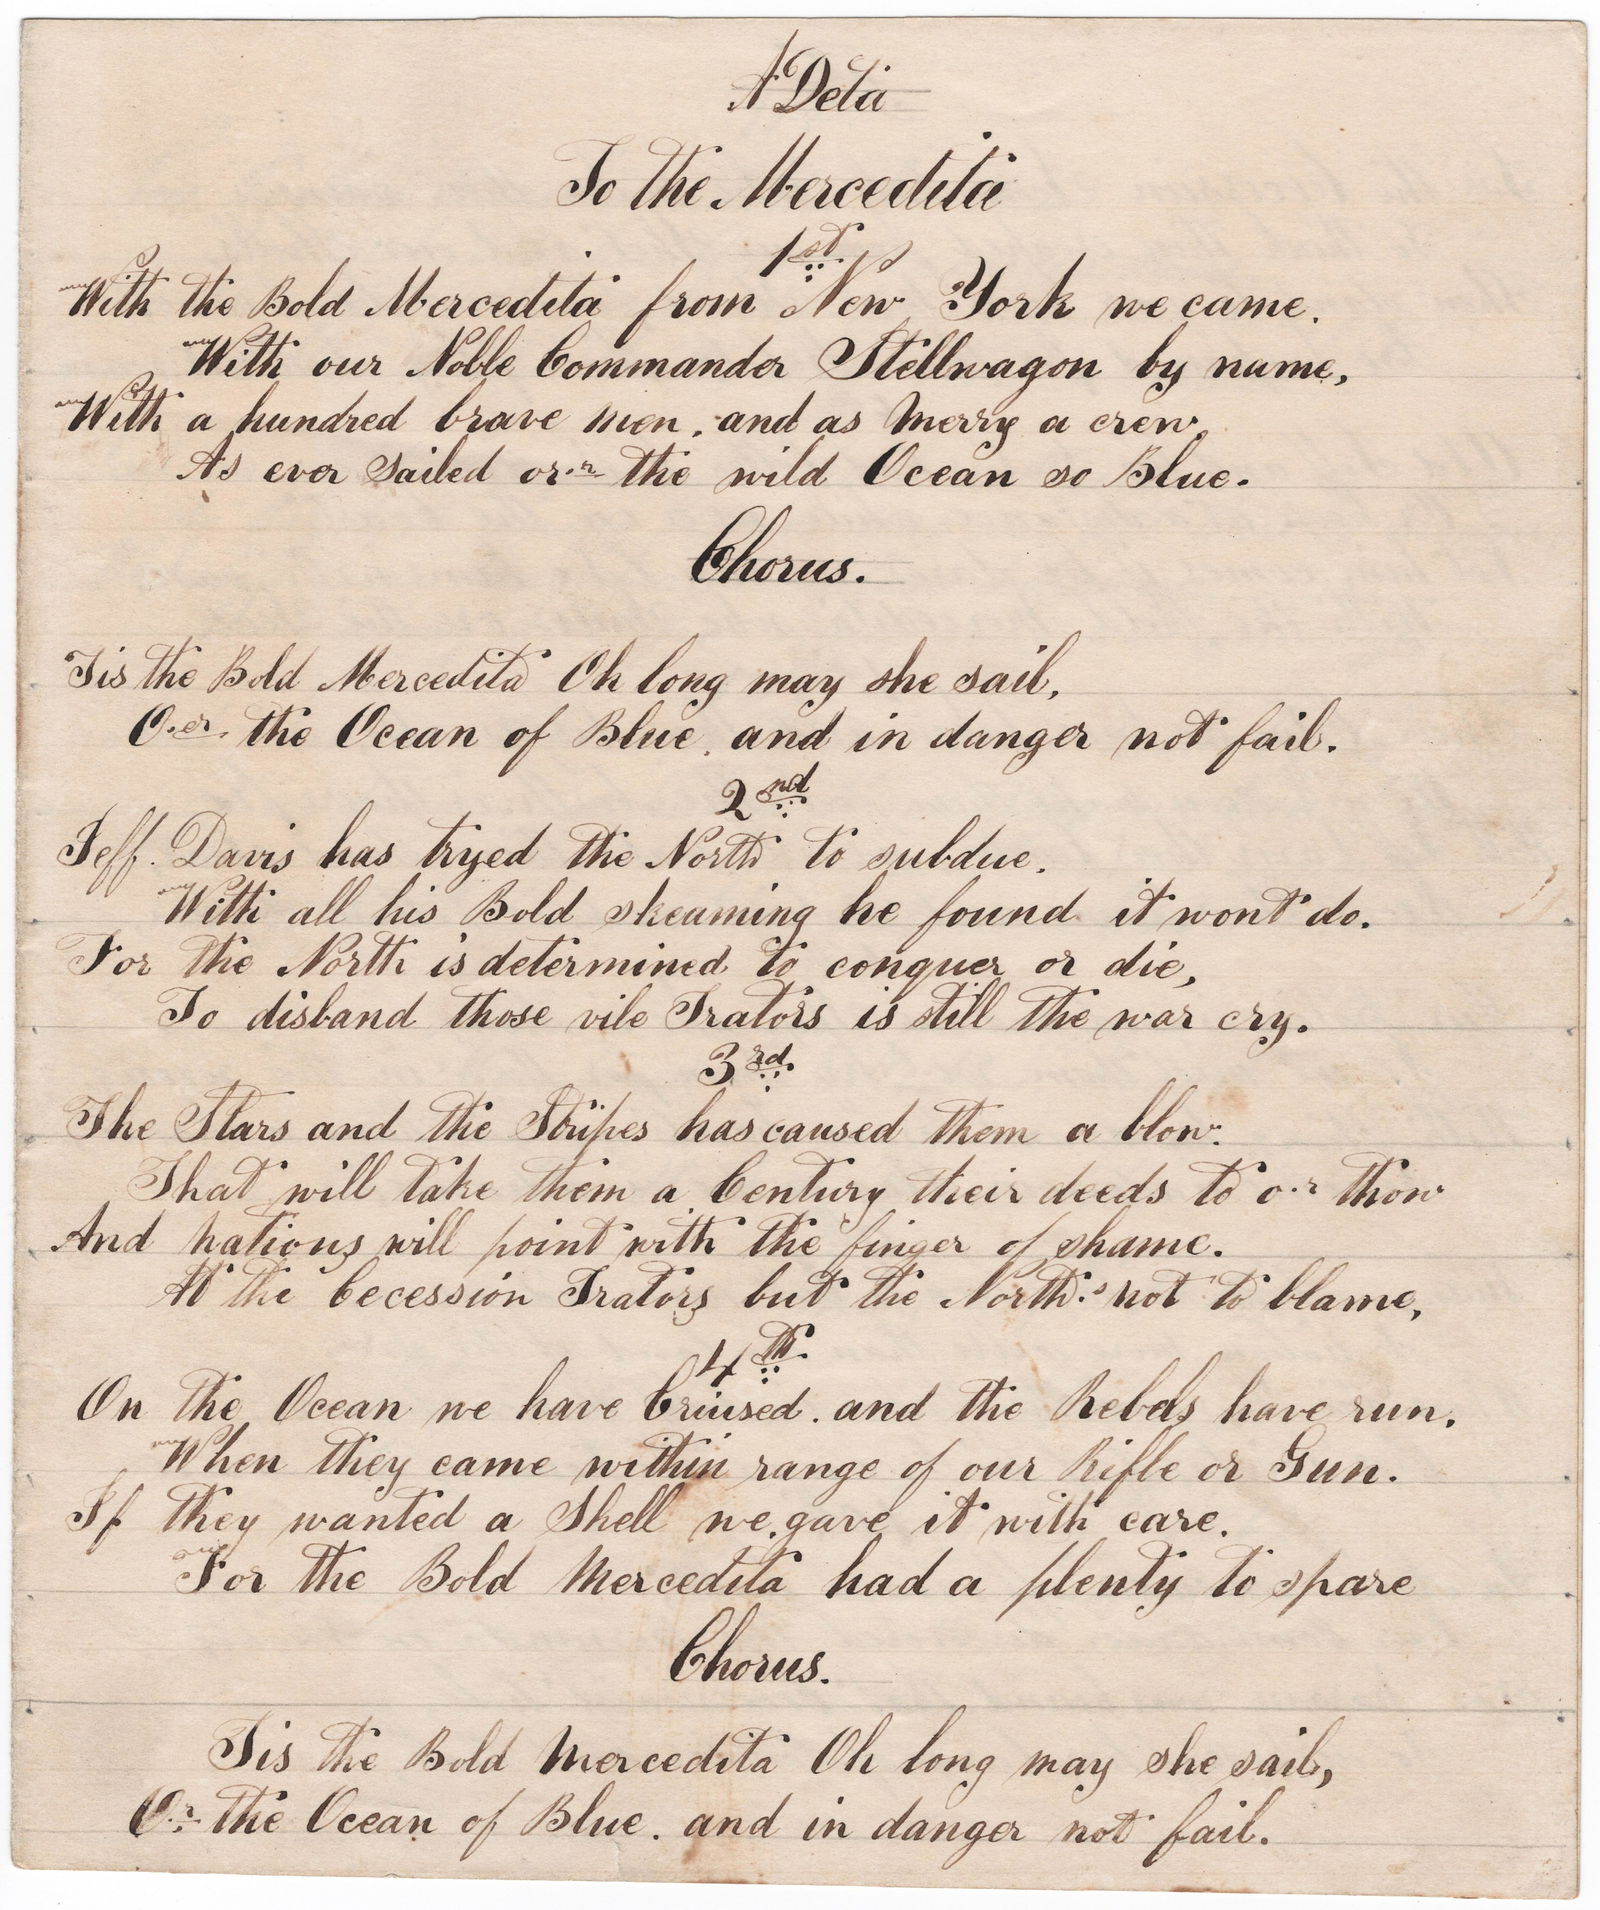 A Deta
To the Mercedita
1st
With the Bold Mercedita from New York we came.
With our Noble Commander Stellwagon by name,
With a hundred brave men. and as Merry a crew,
As ever Sailed or.r the wild Ocean so Blue.
Chorus.
Tis the Bold Mercedita Oh long may she sail,
O.er. the Ocean of Blue. and in danger not fail.
2nd
Jeff. Davis has tryed the North to subdue.
With all his Bold skeaming he found it wont do.
For the North is determined to conquer or die,
To disband those vile Trators is still the war cry.
3rd
The Stars and the Stripes has caused them a blow.
That will take them a Century their deeds to o.r thow
And nations will point with the finger of shame.
At the Cecession Trators but the North.s not to blame,
4th
On the Ocean we have Cruised. and the Rebels have run.
When they came within range of our Rifle or Gun.
If they wanted a Shell we gave it with care.
For the Bold Mercedita had a plenty to spare
Chorus.
Tis the Bold Mercedita Oh long may she sail,
O.r the Ocean of Blue. and in danger not fail.